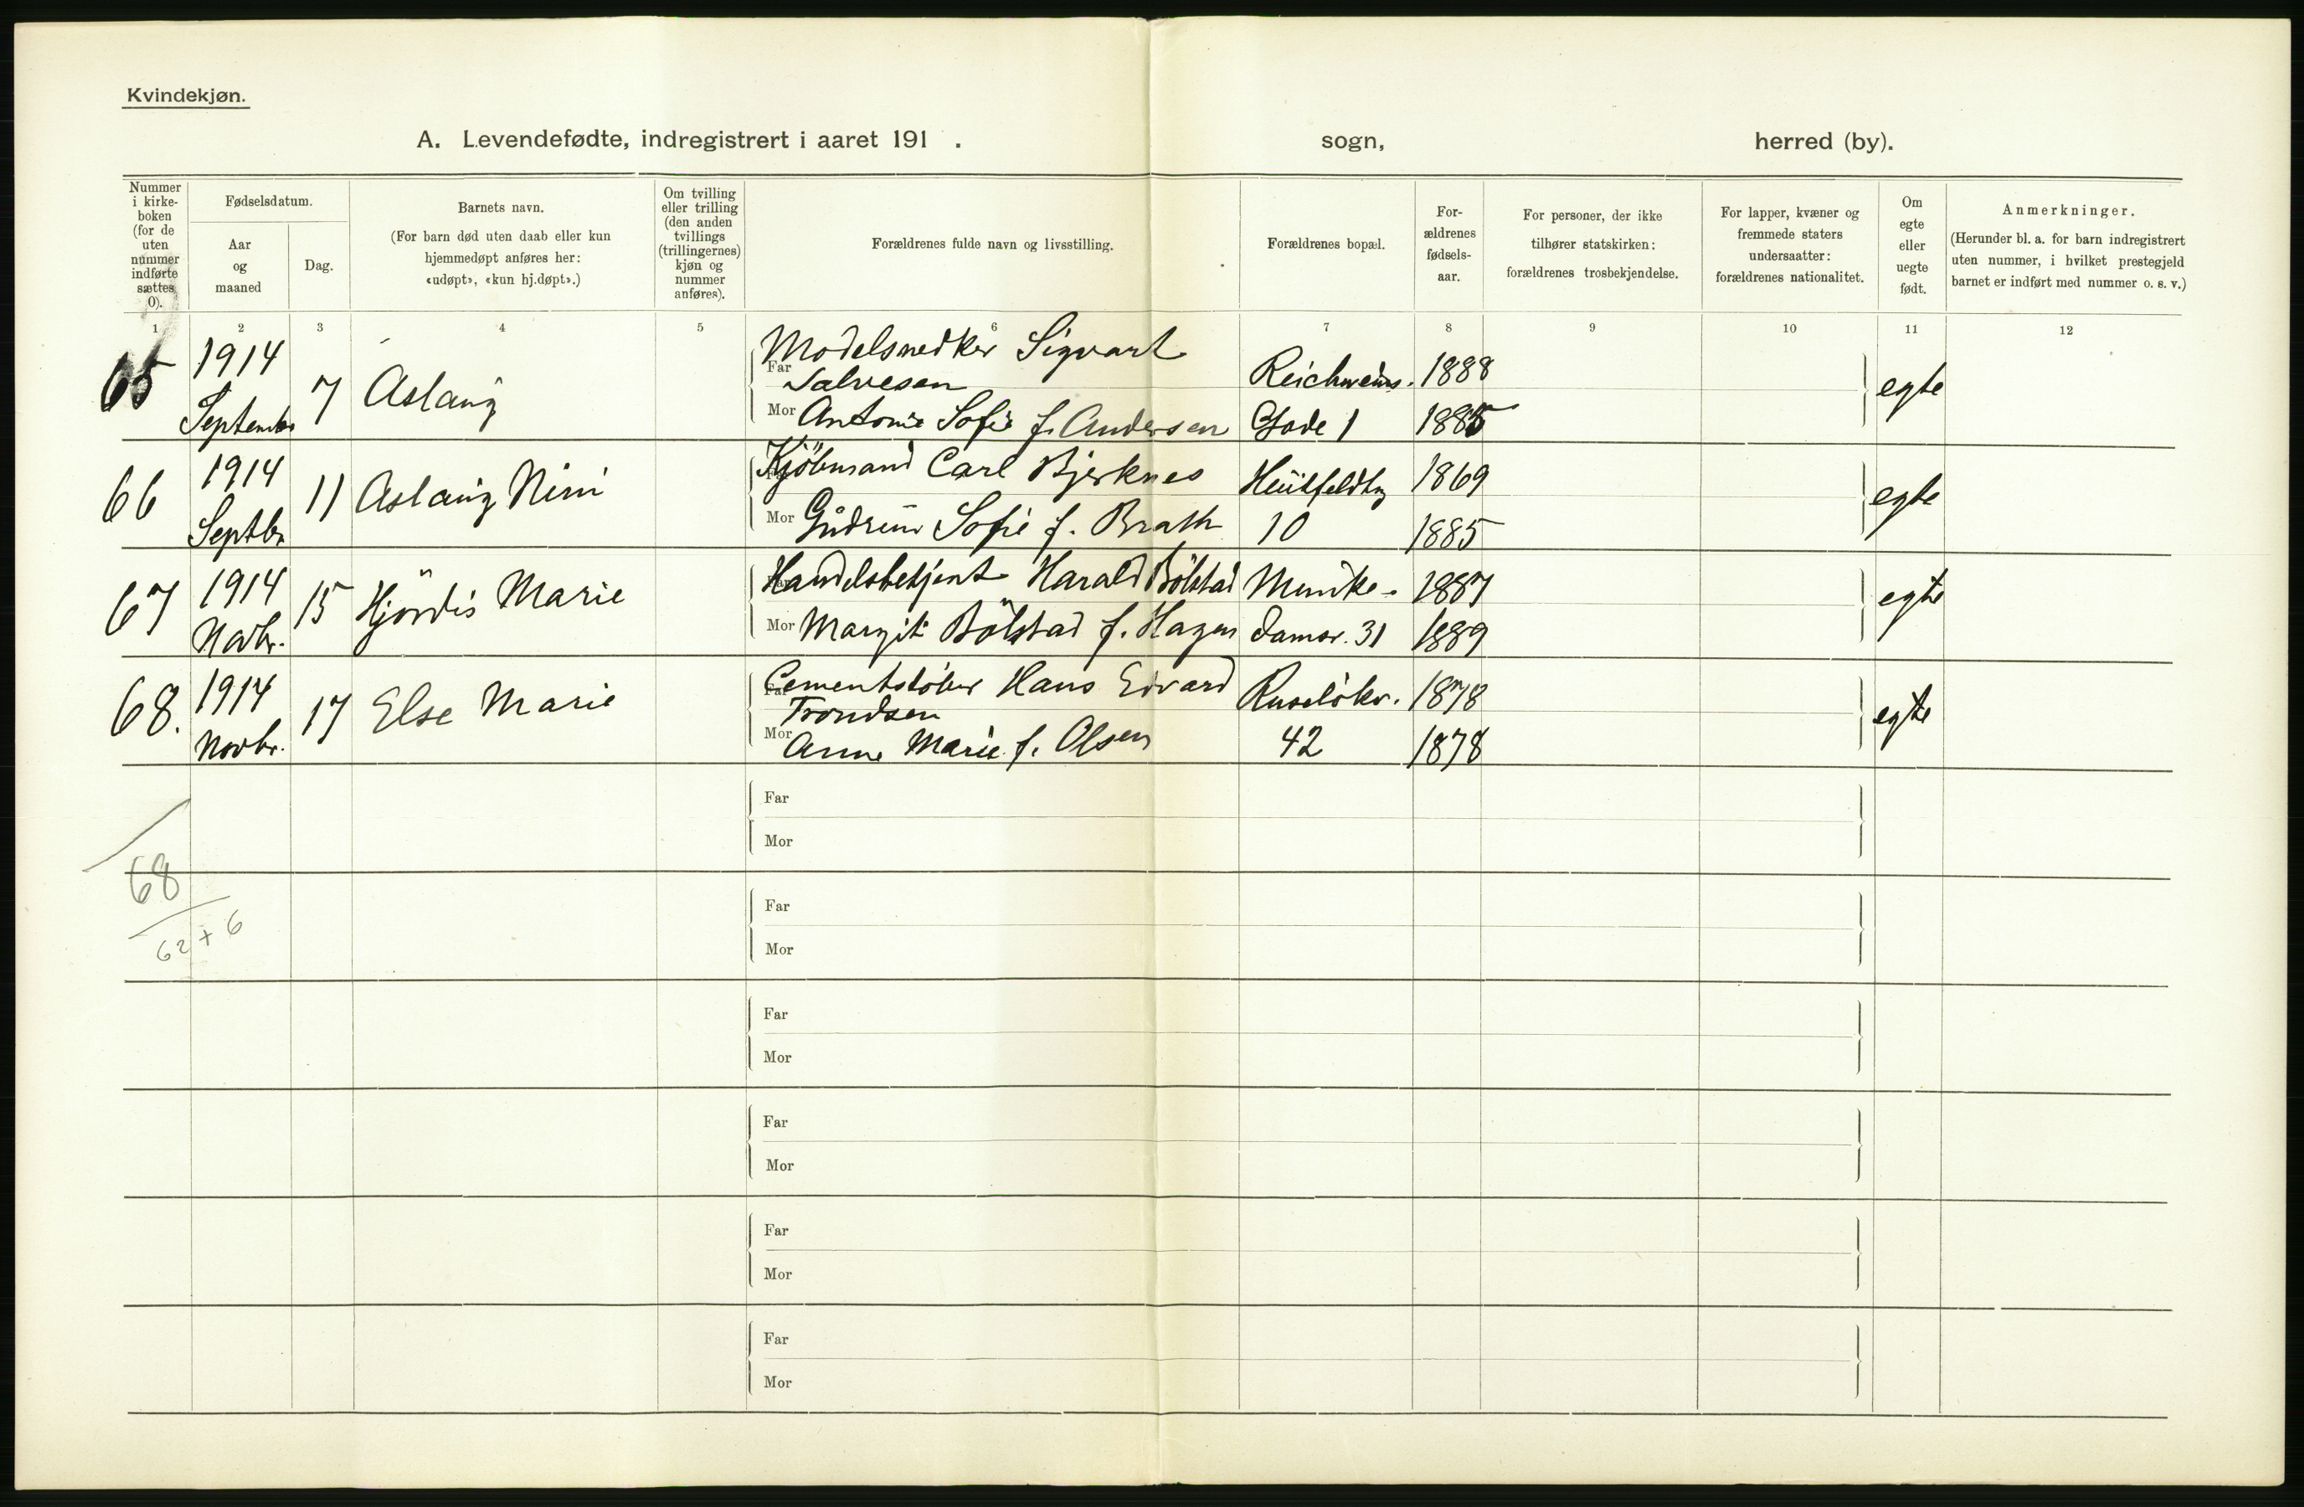 Kvindekjøn.
A. Levendefødte, indregistrert i aaret 191 . sogn, herred (by).
Nummer i kirke-boken (for de uten nummer indførte sættes 0).
Fødselsdatum.
Aar og maaned
Dag.
Barnets navn.
(For barn død uten daab eller kun hjemmedøpt anføres her: «udøpt», «kun hj.døpt».)
Om tvilling eller trilling (den anden tvillings (trillingernes) kjøn og nummer anføres).
Forældrenes fulde navn og livsstilling.
Forældrenes bopæl.
For-ældrenes fødsels-aar.
For personer, der ikke tilhører statskirken: forældrenes trosbekjendelse.
For lapper, kvæner og fremmede staters undersaatter: forældrenes nationalitet.
Om egte eller uegte født.
Anmerkninger.
(Herunder bl. a. for barn indregistrert uten nummer, i hvilket prestegjeld barnet er indført med nummer o. s. v.)
1 2 3 4 5 6 7 8 9 10 11 12
65 1914 Septembr 7 Aslaug
Far Modelsnedker Sigvart Salvesen Reichweins. 1888
Mor Antonie Sofie f. Andersen Gade 1 1885 egte
66 1914 Septbr 11 Aslaug Nini
Far Kjöbmand Carl Bjerknes Huitfeldtg 1869
Mor Gudrun Sofie f. Brath 10 1885 egte
67 1914 Novbr. 15 Hjördis Marie
Far Handelsbetjent Harald Bölstad Munke- 1887
Mor Margit Bölstad f. Hagen damsv. 31 1889 egte
68. 1914 Novbr. 17 Else Marie
Far Cementstöber Hans Edvard Trondsen Ruselökv. 1878
Mor Anne Marie f. Olsen 42 1878 egte
Far
Mor
68
62 + 6
Far
Mor
Far
Mor
Far
Mor
Far
Mor
Far
Mor